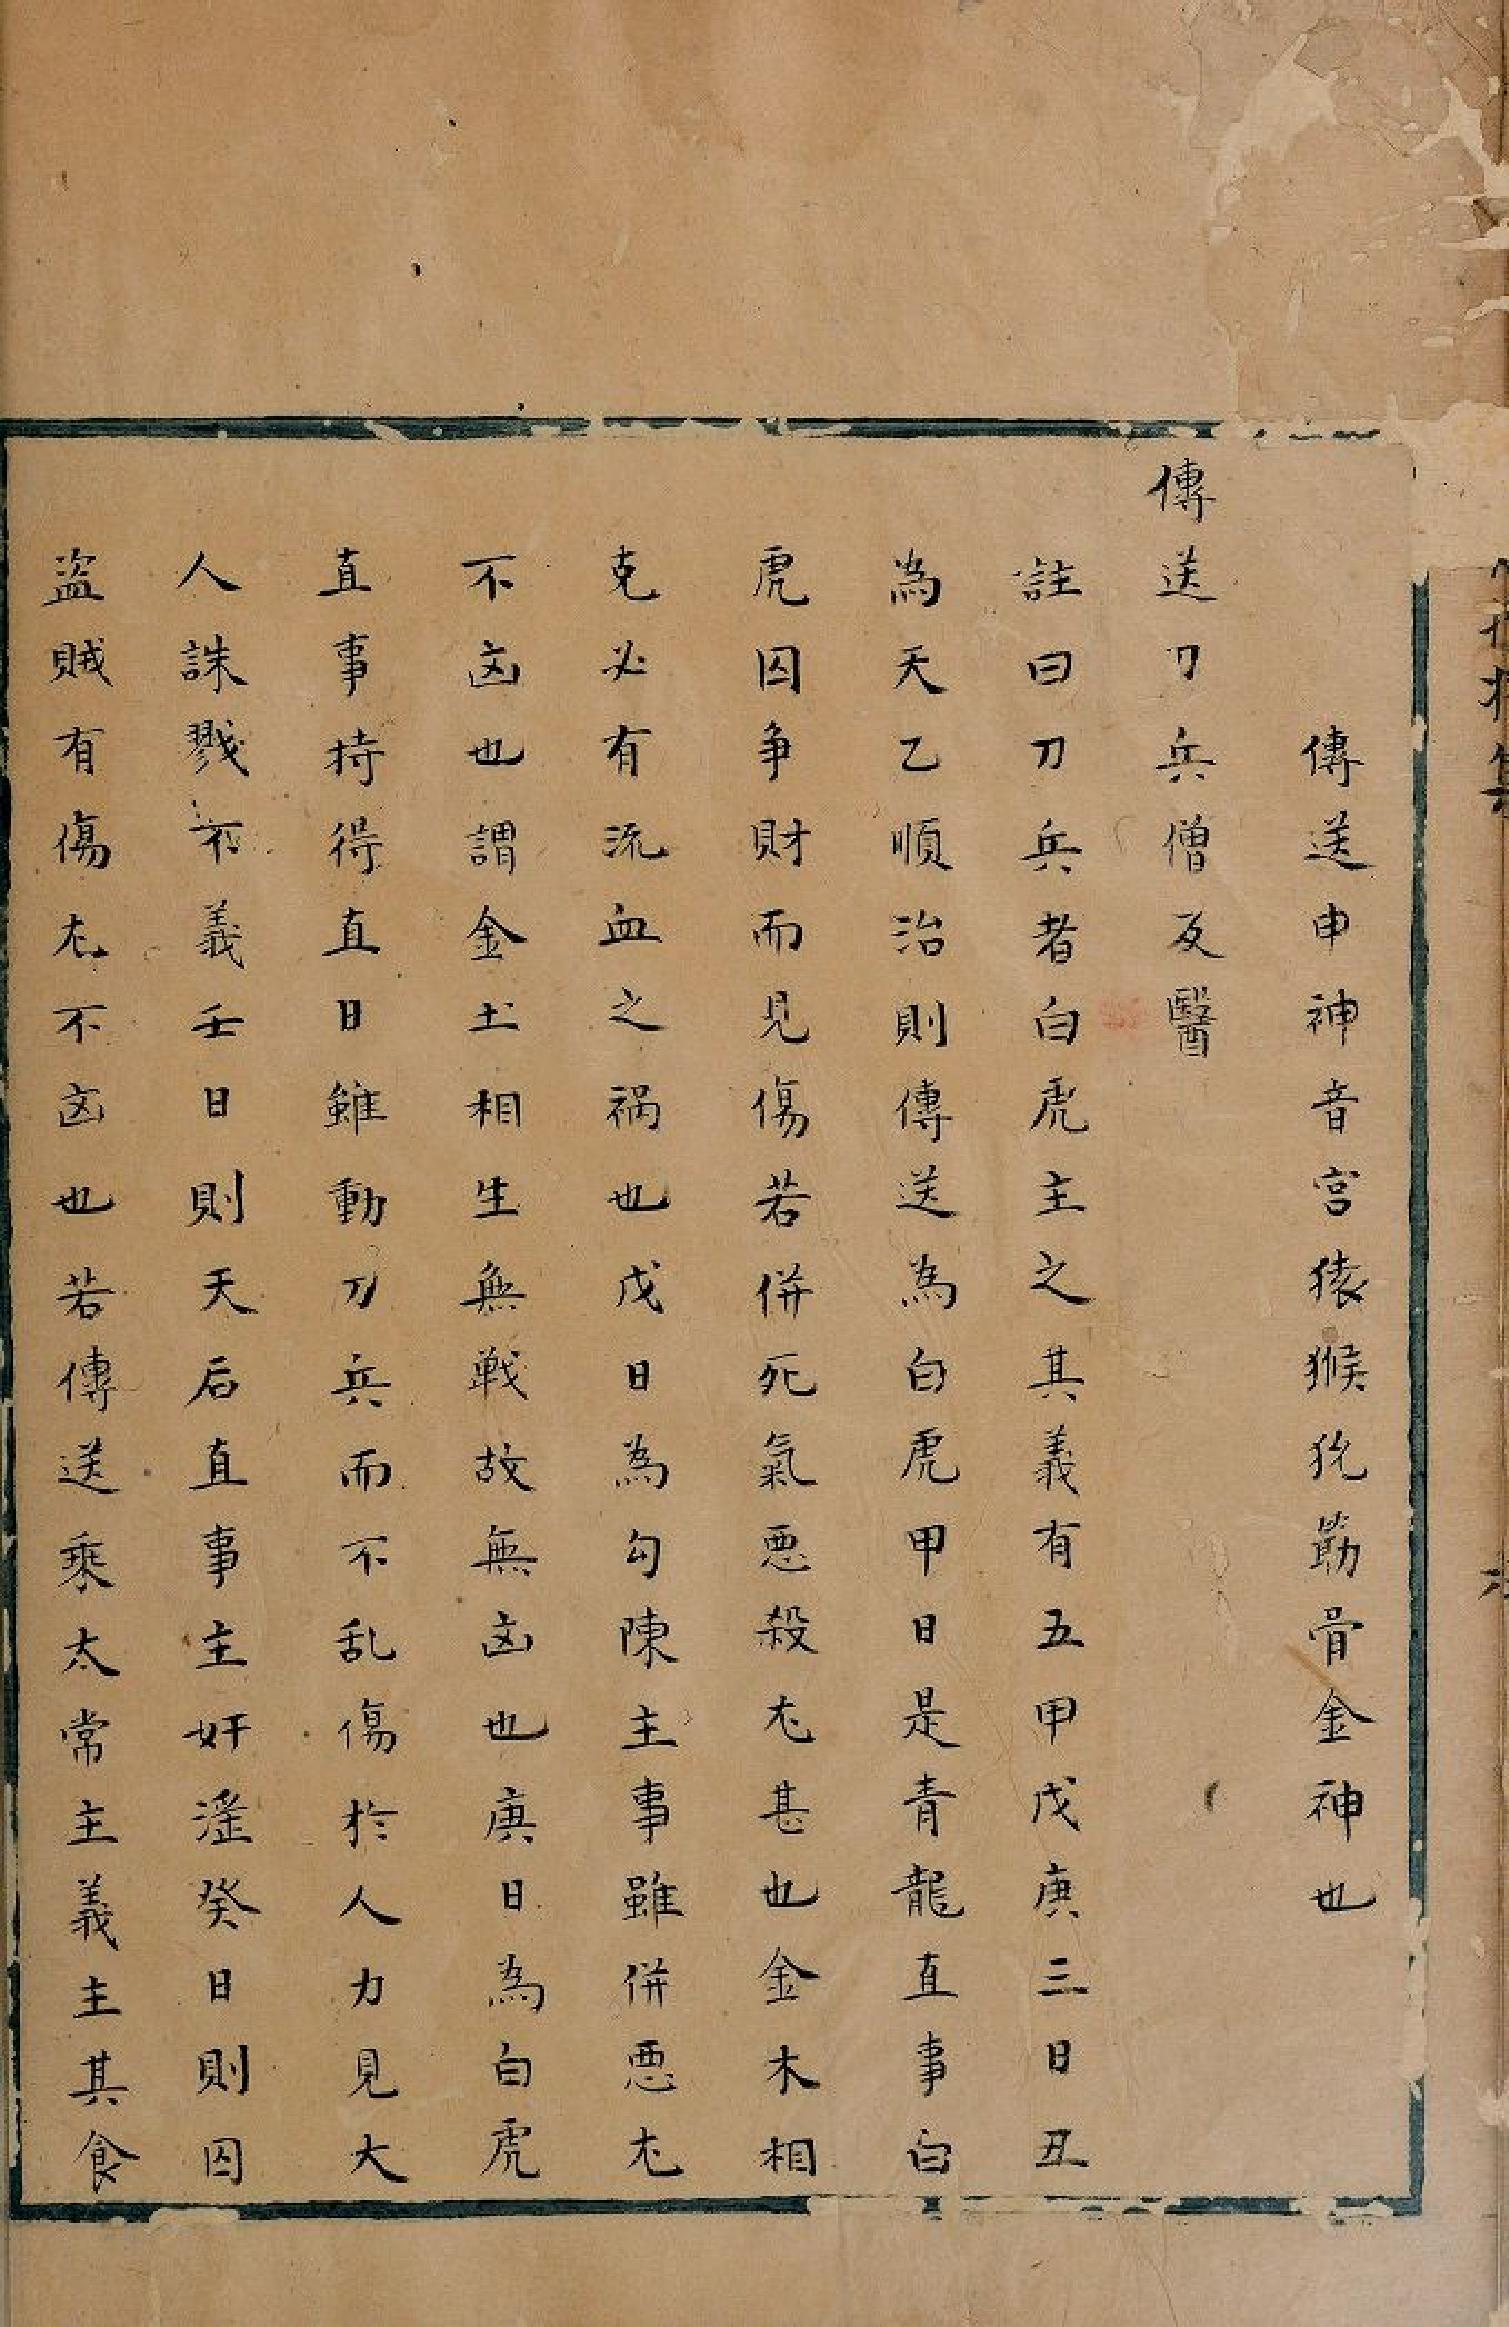 傳送申神音宮猿猴犹筯骨金神也
傳送刀兵僧及醫
註曰刀兵者白虎主之其義有五甲戊庚三日丑
為天乙順治則傳送為白虎甲日是青龍直事白
虎囚争財而見傷若併死氣悪殺尢甚也金木相
克必有流血之禍也戊日為勾陳主事雖併悪尢
不㐫也謂金土相生無戦故無㐫也庚日為白虎
直事持得直日雖動刀兵而不乱傷於人力見大
人誅戮不義壬日則天后直事主奸滛癸日則囚
盗賊有傷尢不㐫也若傳送乘太常主義主其食